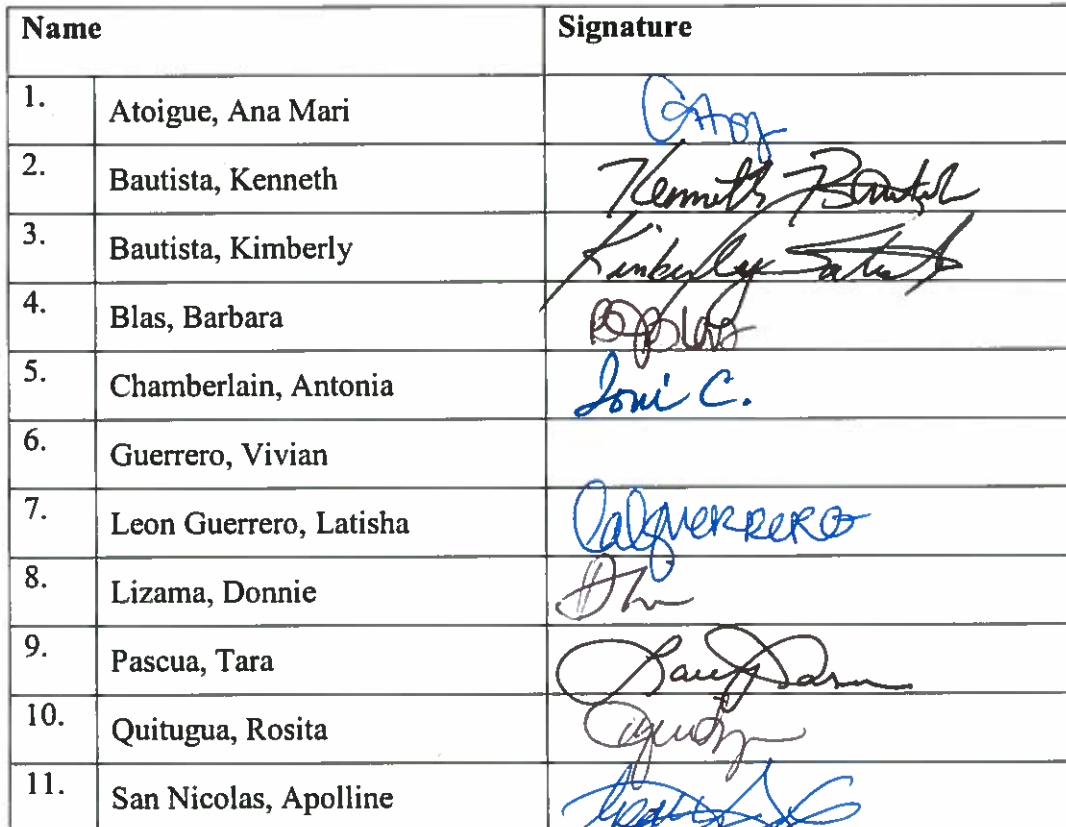 Name Signature
1. Atoigue, Ana Mari
2. Bautista, Kenneth Kenneth Bautista
3. Bautista, Kimberly Kimberly Bautista
4. Blas, Barbara
5. Chamberlain, Antonia Toni C.
6. Guerrero, Vivian
7. Leon Guerrero, Latisha
8. Lizama, Donnie
9. Pascua, Tara
10. Quitugua, Rosita
11. San Nicolas, Apolline